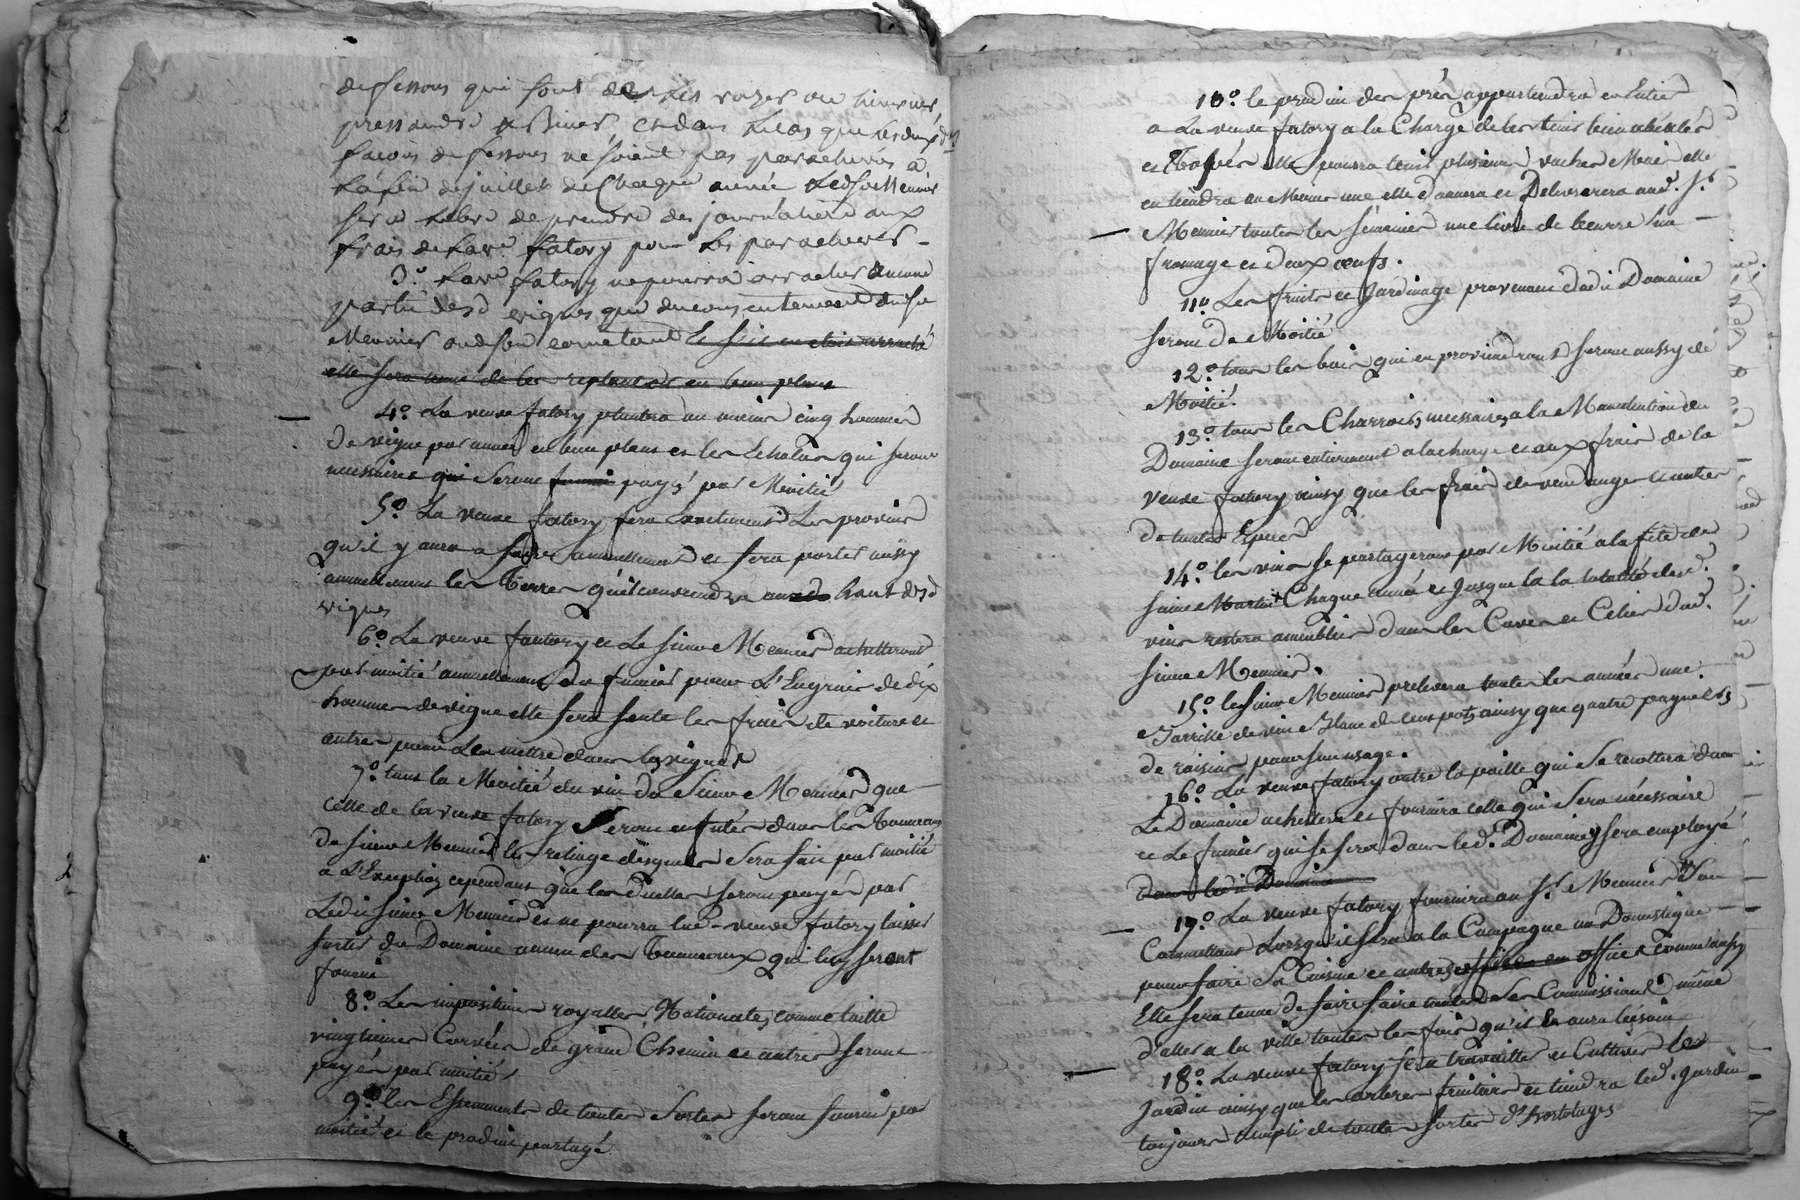 dessous qui sont de les razer ou
et Biner, et dans le cas que les deux d.
façons dessous ne soient pas parachevés a
La fin de juillet de Chaque année Ledt sr Meunier
sera Libre de prendre des journaliers aux
frais de La ve fatory pour Les parachever -
3.o La ve fatory ne pourra arracher aucune
partie desd vignes que du consentement dudt sr
Meunier
elle sera tenue de les replanter en bon plant
4.o La veuve fatory plantera au moins cinq hommes
de vigne par année en bon plant et les Echalas qui seront
necessaires qui Seront payés par Moitié
5.o La veuve fatory fera exactement Les provins
qu'il y aura a faire annuellement et fera porter aussy
annuellement les Terres qu'il conviendra au haut desd
vignes
6.o La veuve fautory et Le sieur Meunier achetteront
par moitié annuellement du fumier pour L'Engrais de dix
hommes de vigne elle sera seule les frais de voiture et
autres pour Les mettre dans les vignes
7.o tant la Moitié du vin du Sieur Meunier que
celle de la veuve fatory Seront enfutés dans les Tonneaux
du sieur Meunier le reliage desquels Sera fait par moitié
a L'Exception cependant que les douelles seront payés par
Ledit sieur Meunier et ne pourra lad. veuve fatory laisser
sortir du Domaine aucun des Tonneaux qui luy seront
fourni
8.o Les impositions royalles Nationales, comme taille
vingtiemes Corvées de grand Chemin et autres seront
payés par moitiés
9.o les Essements de toutes Sortes seront fourni par
moitié et le produit partagé
10.o le produit des prés appartiendra en Entier
a La veuve fatory a la Charge de les tenir bien
et elle pourra tenir plusieurs vaches Mais elle
en tiendra au Moins une elle donnera et Delivrera aud. Sr
Meunier toutes les semaines une livre de beurre un
fromage et deux œufs.
11.o Les fruits et Jardinage provenant dudit Domaine
seront de Moitié
12.o tous les bois qui en proviendront seront aussy de
Moitié.
13.o tous les Charrois, necessaires a la Manutention du
Domaine seront entierement a la charge et aux frais de la
veuve fatory ainsy que les frais de vendange et autres
de toutes Especes
14.o les vins se partageront par Moitié a la fête de
saint Martin Chaque année et Jusque la la totalité desd.
vins restera dans les Caves et Celier dud.
sieur Meunier.
15.o le sieur Meunier prelevera toutes les années une
de vin Blanc de leur ainsy que quatre pagnées
de raisins pour son usage.
16.o La veuve fatory outre la paille qui Se recoltera dans
Le Domaine achettera et fournira celle qui Sera nécessaire
et Le fumier qui se fera dans led. Domaine y sera employé
dans ledit Domaine
17.o La veuve fatory fournira au sr Meunier
Lorsqu'il sera a la Campagne un Domestique
pour faire Sa Cuisine et autres offices comme aussy
Elle sera tenue de faire faire toutes Ses Commissions même
d'aller a la ville toutes les fois qu'il En aura besoin
18.o La veuve fatory fera travailler et Cultiver le
Jardin ainsy que les arbres fruitiers et tiendra led. Jardin
toujours rempli de toutes sortes d'hortolages